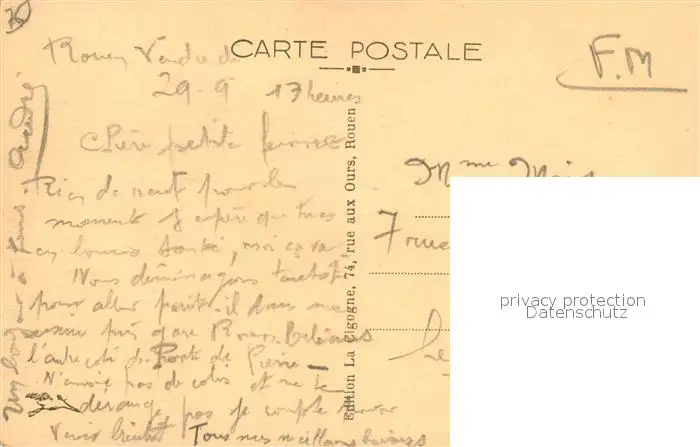 CARTE POSTALE
F.M
Rouen Vendredi
29-9 17 heures
Chère petite femme
Rien de neuf pour le
moment j'espère que tu es
en bonne santé, moi ça va
Nous déménageons tantôt
pour aller parait-il dans une
usine près gare Rouen-Orléans
l'autre coté de
N'envoie pas de colis et ne te
dérange pas je compte
Tous mes meilleurs baisers
Un bonjour à tous André
Edition La Cigogne, 74, rue aux Ours, Rouen
Mme
7 rue
privacy protection
Datenschutz